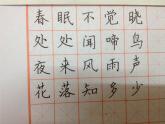 春眠不觉晓
处处闻啼鸟
夜来风雨声
花落知多少